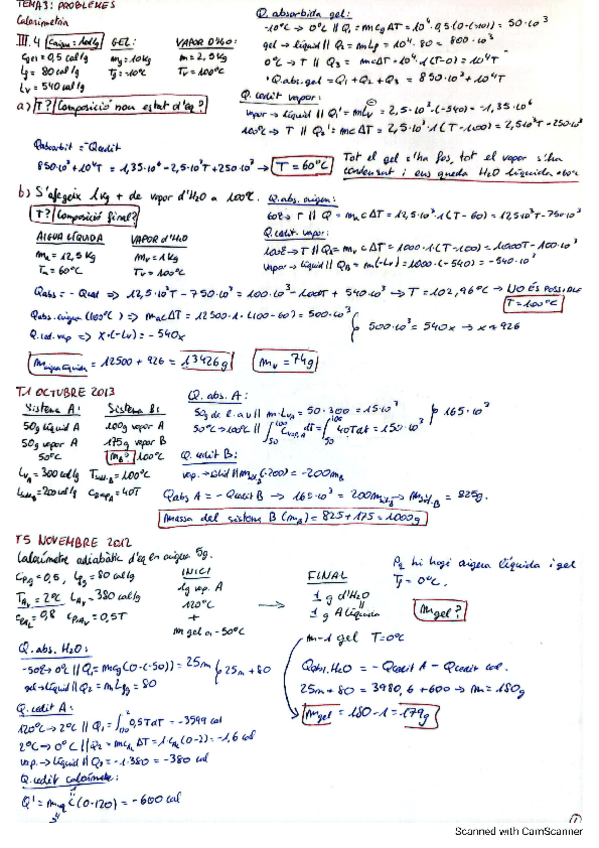 TEMA 3: PROBLEMES
Calorimetria
III.4 Caigua = 1cal/g GEL: VAPOR D'H2O:
Cgel = 0,5 cal/g mg = 10kg m = 2,5kg
Lf = 80 cal/g Tg = -10°C Tv = 100°C
Lv = 540 cal/g
a) T? Composició nou estat d'eq?
Q. absorbida gel:
-10°C → 0°C || Q1 = mCgΔT = 10⁴·0,5(0-(-10)) = 50·10³
gel → líquid || Q2 = mLf = 10⁴·80 = 800·10³
0°C → T || Q3 = mcΔT = 10⁴·1(T-0) = 10⁴T
Q.abs.gel = Q1 + Q2 + Q3 = 850·10³ + 10⁴T
Q. cedit vapor:
vapor → líquid || Q1' = mLv = 2,5·10³(-540) = -1,35·10⁶
100°C → T || Q2' = mcΔT = 2,5·10³·1(T-100) = 2,5·10³T - 250·10³
Qabsorbit = -Qcedit
850·10³ + 10⁴T = 1,35·10⁶ - 2,5·10³T + 250·10³ → T = 60°C
Tot el gel s'ha fos, tot el vapor s'ha
condensat i ens queda H2O líquida a 60°C
b) S'afegeix 1kg + de vapor d'H2O a 100°C.
T? Composició final?
AIGUA LÍQUIDA VAPOR D'H2O
ma = 12,5 kg mv = 1kg
Ta = 60°C Tv = 100°C
Q. abs. aigua:
60°C → T || Q = mcΔT = 12,5·10³·1(T-60) = 12,5·10³T - 750·10³
Q. cedit. vapor:
100°C → T || QA = mv c ΔT = 1000·1(T-100) = 1000T - 100·10³
vapor → líquid || QB = m(-Lv) = 1000·(-540) = -540·10³
Qabs = -Qced => 12,5·10³T - 750·10³ = 100·10³ - 1000T + 540·10³ → T = 102,96°C → NO ÉS POSSIBLE
T = 100°C
Qabs.aigua(100°C) => maCΔT = 12500·1·(100-60) = 500·10³
Q.ced.vap => x·(-Lv) = -540x
500·10³ = 540x → x = 926
maigua líquida = 12500 + 926 = 13426g mv = 74g
T1 OCTUBRE 2013
Sistema A: Sistema B:
50g líquid A 100g vapor A
50g vapor A 175g vapor B
50°C mB? 100°C
LvA = 300 cal/g Tsist.B = 100°C
= 200 cal/g = 40T
Q. abs. A:
50g de l. a v || m·LvA = 50·300 = 15·10³
50°C → 100°C || ∫ CvapA dT = ∫ 40TdT = 150·10³
165·10³
Q. cedit B:
vap. → sòlid || m (-200) = -200mB
Qabs A = -Qcedit B → 165·10³ = 200m → m = 825g.
Massa del sistema B (mB) = 825 + 175 = 1000g
T5 NOVEMBRE 2012
Calorímetre adiabàtic d'eq en aigua 5g.
CPg = 0,5, Lfg = 80 cal/g
TAv = 2°C LAv = 380 cal/g
cPAL = 0,8 cPAv = 0,5T
INICI
1g vap. A
120°C
+
m gel a -50°C
→
FINAL
1 g d'H2O
1 g A líquida
m-1 gel T = 0°C
Pq hi hagi aigua líquida i gel
Tf = 0°C.
mgel?
Q. abs. H2O:
-50°C → 0°C || Q1 = mcg(0-(-50)) = 25m
gel → líquid || Q2 = mLfg = 80
25m + 80
Q. cedit A:
120°C → 2°C || Q1 = ∫ 0,5TdT = -3599 cal
2°C → 0°C || Q2 = mcALΔT = 1·cAL(0-2) = -1,6 cal
vap. → líquid || Q3 = -1·380 = -380 cal
Q. cedit calorímetre:
Q' = meq c(0-120) = -600 cal
Qabs.H2O = -Qcedit A - Qcedit cal.
25m + 80 = 3980,6 + 600 → m = 180g
mgel = 180 - 1 = 179g
1
Scanned with CamScanner